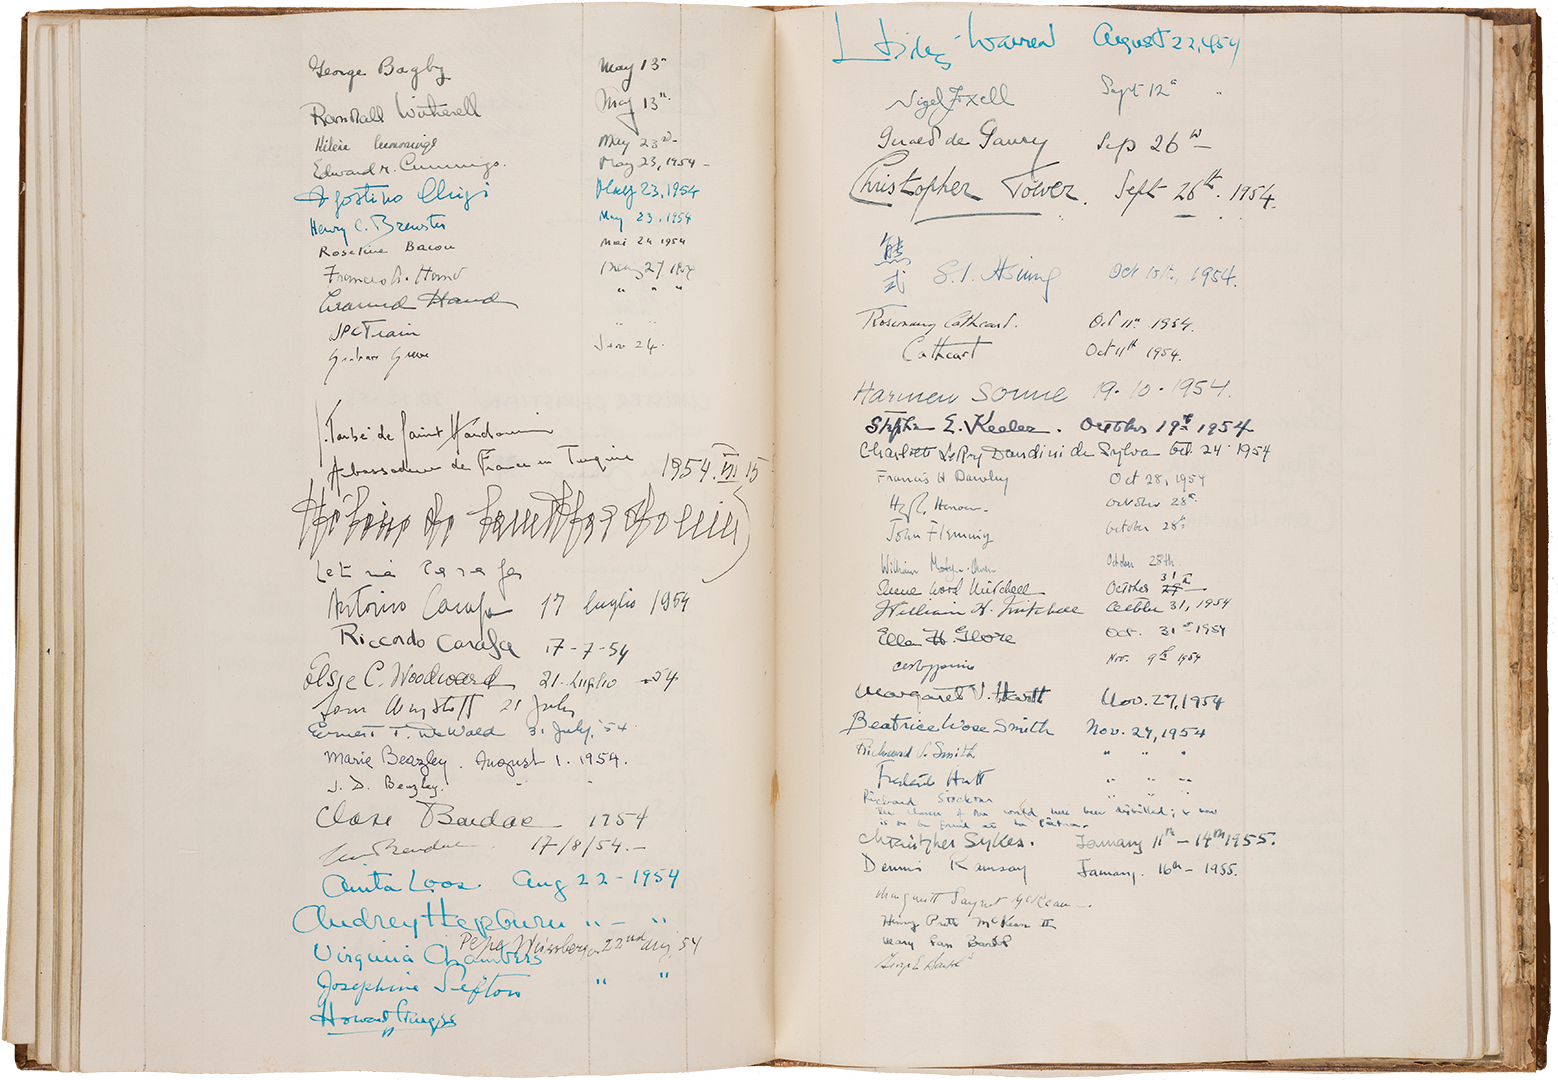 George Bagby May 13"
Randall Witherell May 13th.
Hélène May 23rd -
Edward M. Cummings. May 23, 1954 -
Agostino Chigi May 23, 1954
Henry C. Brewster May 23, 1954
Roseline Bacou Mai 24 1954
Frances A. Hand May 27 1954
Learned Hand " " "
JPC Train " "
Graham Greene Juin 24.
J. Tarbé de Saint Hardouin
Ambassadeur de France en Turquie 1954. VI 15
de Saint Hardouin
Letizia Carafa
Antonino Carafa 17 luglio 1954
Riccardo Carafa 17-7-54
Elsje C. Woodward 21. Luglio - 54
21 July
Ernest T. DeWald 31 July, '54
Marie Beazley. August 1. 1954.
J. D. Beazley. " "
Clare Bardac 1954
17/8/54.-
Anita Loos Aug 22-1954
Audrey Hepburn " - "
Virginia Chambers
22nd aug. 54
Josephine Sefton " "
Howard Sturgis
Lesley Warren August 22, 1954
Nigel Foxell Sept 12th "
Gerald de Gaury Sep 26th
Christopher Tower. Sept 26th. 1954.
熊
式 S. I. Hsiung Oct 10th., 1954.
Rosemary Cathcart. Oct 11th 1954.
Cathcart Oct 11th 1954.
Harmen Sonne 19.10.1954.
Stephen E. Keeler. October 19th 1954
Charlotte LeRoy Dandini de Sylva Oct. 24 1954
Francis H Dawley Oct 28, 1954
Hugh Honour. October 28th
John Fleming October 28th
William Mostyn-Owen October 28th
Anne Wood Mitchell October 31st
William H. Mitchell October 31, 1954
Ella H. Glore Oct. 31st 1954
Nov. 9th 1954
Margaret V. Hartt Nov. 27, 1954
Beatrice Wose Smith Nov. 27, 1954
Richard S. Smith " " "
Frederick Hartt " " "
Richard Stockton " " "
The charm of the world have been distilled; & now
is to be found at
Christopher Sykes. January 11th - 14th 1955.
Dennis Ramsay January. 16th - 1955.
Margarett Sargent McKean
Henry Pratt McKean II
Mary